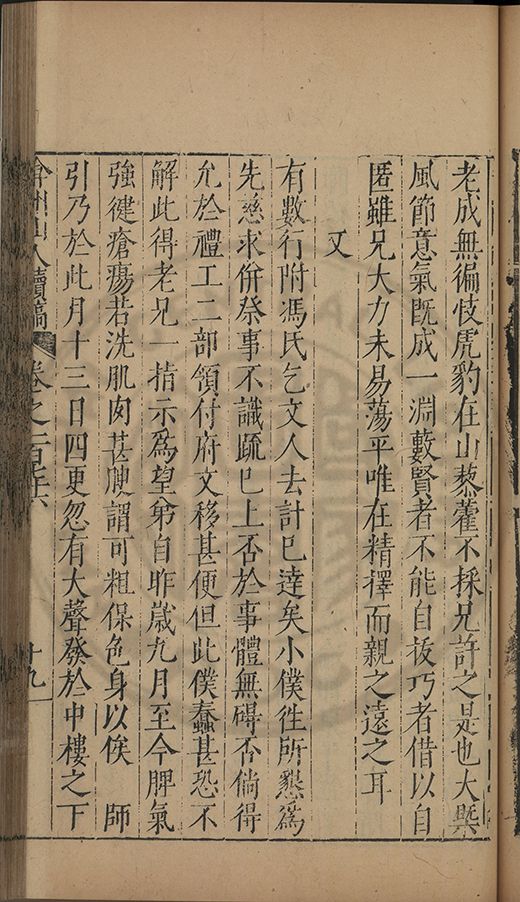 老成無徧忮虎豹在山藜藿不採兄許之是也大槩
風節意氣旣成一淵藪賢者不能自拔巧者借以自
匿雖兄大力未易蕩平唯在精擇而親之遠之耳
又
有數行附馮氏乞文人去計巳達矣小僕徃所懇爲
先慈求併祭事不識䟽巳上否於事體無碍否倘得
允於禮工二部領付府文移甚便但此僕蠢甚恐不
解此得老兄一指示爲望弟自昨歲九月至今脾氣
強健瘡瘍若洗肌肉甚腴謂可粗保色身以俟 師
引乃於此月十三日四更忽有大聲發於中樓之下
弇州山人續稿 卷之一百
十九